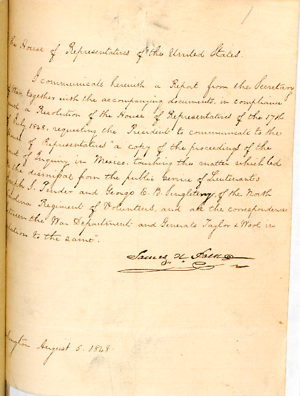 the House of Representatives of the United States.
I communicate herewith a Report from the Secretary
of War, together with the accompanying documents, in compliance
with a Resolution of the House of Representatives of the 17th
of July 1848, requesting the President to communicate to the
House of Representatives "a copy of the proceedings of the
of Inquiry in Mexico, touching the matter which led
the dismissal from the public service of Lieutenants
Joseph S. Pender and George E. B. Singletary of the North
Carolina Regiment of Volunteers, and all the correspondence
between the War Department and Generals Taylor & Wool in
relation to the same".
James K. Polk
Washington August 5. 1848